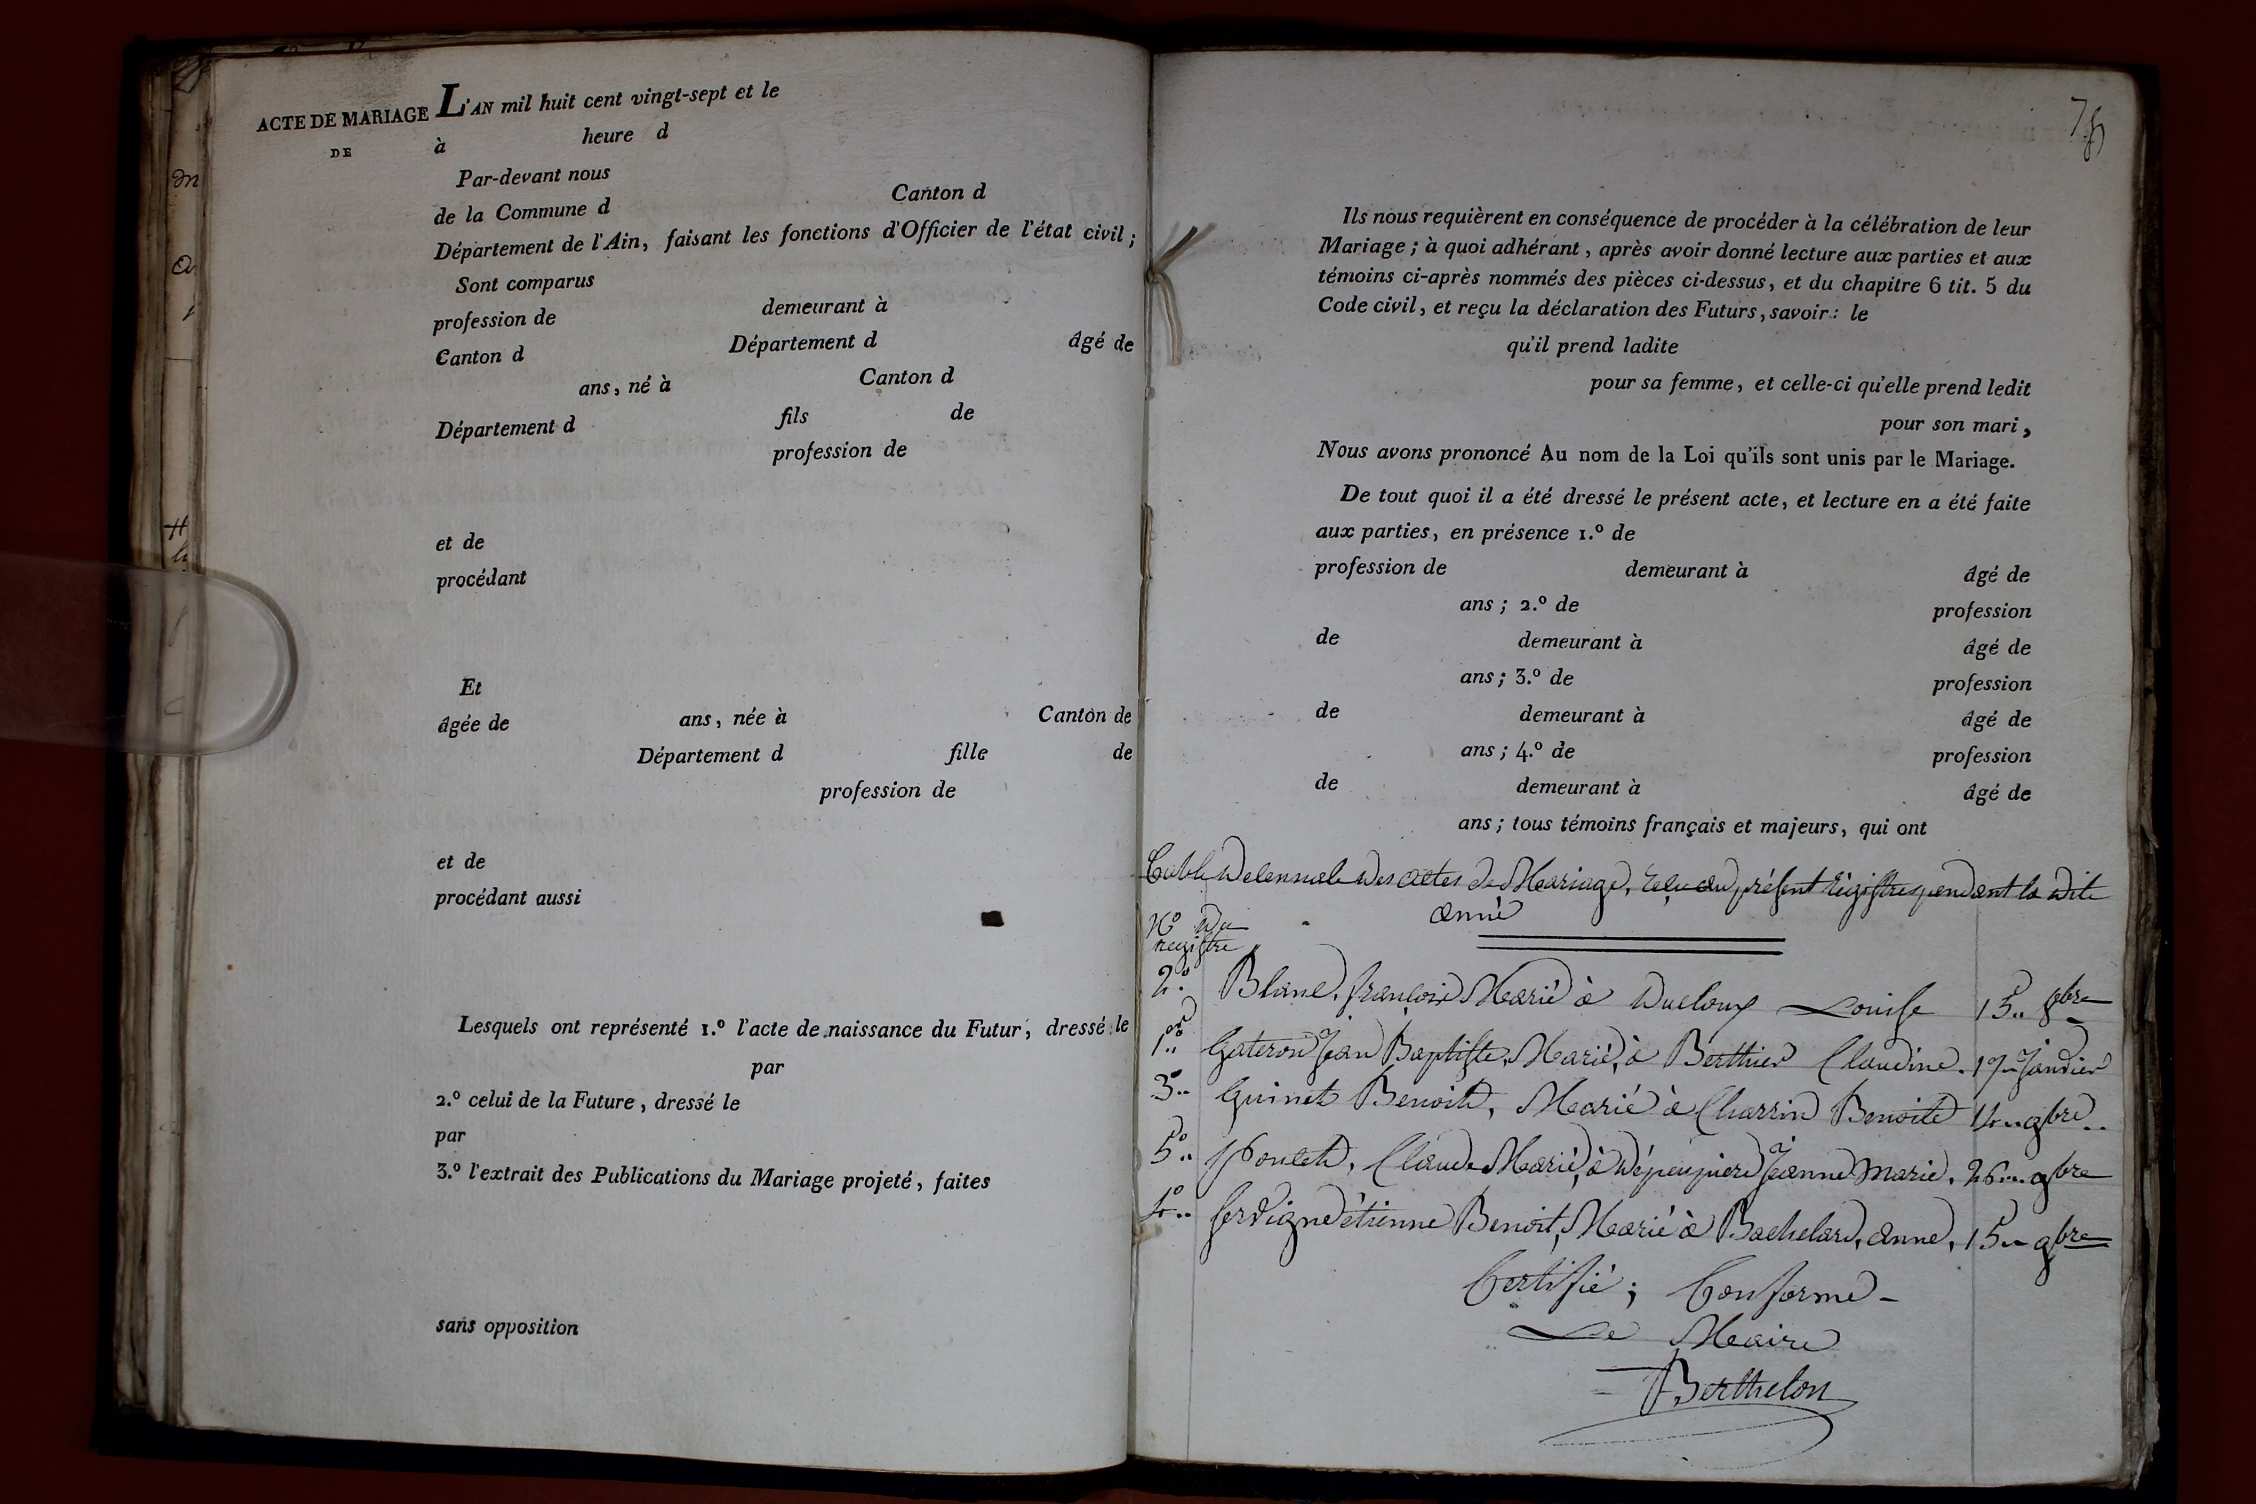 ACTE DE MARIAGE
DE
L'AN mil huit cent vingt-sept et le
à heure d
Par-devant nous
de la Commune d Canton d
Département de l'Ain, faisant les fonctions d'Officier de l'état civil ;
Sont comparus
profession de demeurant à
Canton d Département d âgé de
ans, né à Canton d
Département d fils de
profession de
et de
procédant
Et
âgée de ans, née à Canton de
Département d fille de
profession de
et de
procédant aussi
Lesquels ont représenté 1.º l'acte de naissance du Futur, dressé le
par
2.º celui de la Future, dressé le
par
3.º l'extrait des Publications du Mariage projeté, faites
sans opposition
Ils nous requièrent en conséquence de procéder à la célébration de leur
Mariage ; à quoi adhérant, après avoir donné lecture aux parties et aux
témoins ci-après nommés des pièces ci-dessus, et du chapitre 6 tit. 5 du
Code civil, et reçu la déclaration des Futurs, savoir : le
qu'il prend ladite
pour sa femme, et celle-ci qu'elle prend ledit
pour son mari,
Nous avons prononcé Au nom de la Loi qu'ils sont unis par le Mariage.
De tout quoi il a été dressé le présent acte, et lecture en a été faite
aux parties, en présence 1.º de
profession de demeurant à âgé de
ans ; 2.º de profession
de demeurant à âgé de
ans ; 3.º de profession
de demeurant à âgé de
ans ; 4.º de profession
de demeurant à âgé de
ans ; tous témoins français et majeurs, qui ont
des actes de Mariage, reçu au présent Régistre pendant la dite
année
Nº du
registre
2º Blanc, françois Marié à Ducloux Louise 15.. 8bre
1er Gateron Jean Baptiste, Marié, à Berthier Claudine. 17.. Janvier
3º.. Guinet Benoit, Marié à Charrin Benoite 14.. 9bre..
5º.. Poncet, Claude Marié, à Dépeupière Jeanne Marie. 26... 9bre
4º.. Servigne étienne Benoit, Marié à Bachelard, anne, 15.. 9bre
Certifié ; Conforme -
Le Maire
Berthelon